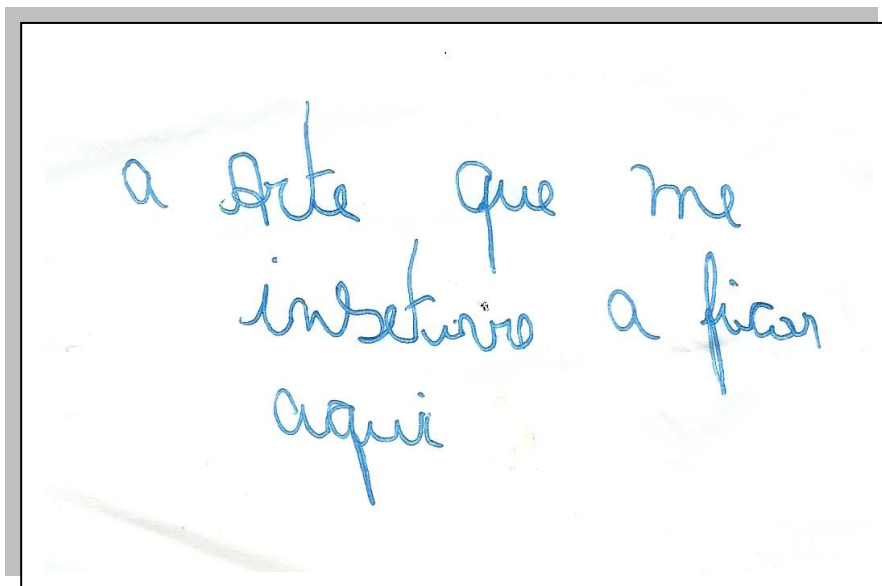 a Arte que me
insetivro a ficar
aqui